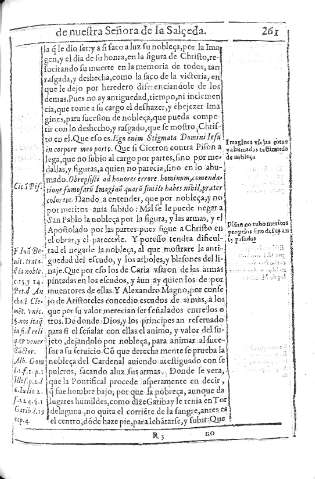 de nuestra Señora de la Salçeda. 261
la q̃ le dio ser: y a si saco a luz su nobleça, por la Ima
gen, y el dia de su honra, en la figura de Christo, re-
sucitando su muerte en la memoria de todos, tan
rasgada, y deshecha, como la saco de la victoria, en
que le dejo por heredero diferenciandole de los
demas. Pues no ay antiguedad, tiempo, ni inclemen
cia, que tome a su cargo el deshazer, y ebejezer Ima
gines, para sucesion de nobleça, que pueda compe
tir con lo deshecho, y rasgado, que se mostro, Chris-
to en el. Que eso es. Ego enim Stigmata Domini Iesu
in corpore meo porto. Que si Ciceron contra Pison a
lega, que no subio al cargo por partes, sino por me-
dallas, y figuras, a quien no parecia, sino en lo ahu-
mado. Obrepsisti ad honores errore hominum, comenda-
tione fumosarũ Imaginũ quarũ simile habes nihil, præter
colorem. Dando a entender, que por nobleça, y no
por meritos auia subido: Mal se le puede negar a
San Pablo la nobleça por la figura, y las armas, y el
Apostolado por las partes pues sigue a Christo en
el obrar, y el parecerle. Y por eso tendra dificul-
tad el negarle la nobleça, al que mostrare la anti-
guedad del escudo, y los arboles, y blasones del li-
naje. Que por eso los de Caria vsaron de las armas
pintadas en los escudos, y aun ay quien los de por
inuentores de ellas. Y Alexandro Magno, por conse
jo de Aristoteles concedio escudos de armas, a los
que por su valor merecian ser señalados entre los o
tros. De donde Dios, y los principes an reseruado
para si el señalar con ellas el animo, y valor del su-
jeto, dejandolo por nobleça, para animar al suce-
sor a su seruicio. Cõ que derecha mente se prueba la
nobleça del Cardenal auiendo atestiguado con se
polcros, sacando a luz sus armas. Donde se vera,
que la Pontifical procede asperamente en decir,
q̃ fue hombre bajo, por que la pobreça, aunque da
lugares humildes, como dize Garibay le tenia en Tor
delaguna, no quita el corriẽte de la sangre, antes es
el centro, dõde haze pie, para lebãtarse, y subir. Que
R 3 no
Cic. I Pis.
Imagines
de nobleça